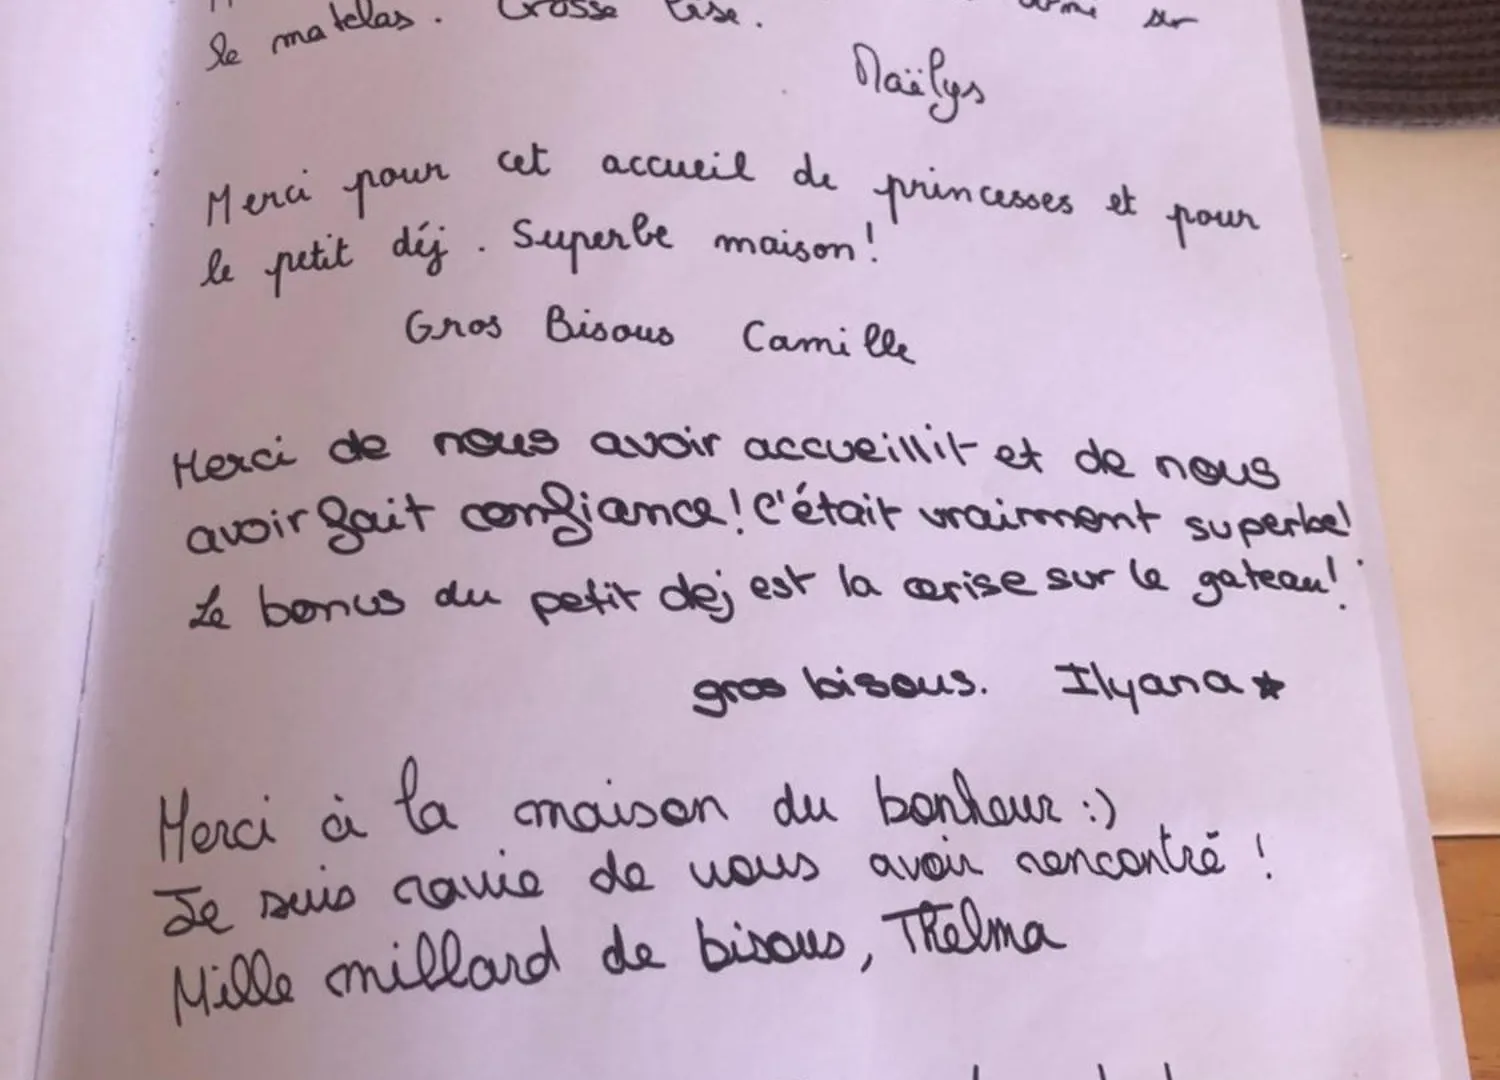 le matelas. Grosse bise. sur
Maëlys
Merci pour cet accueil de princesses et pour
le petit déj. Superbe maison!
Gros Bisous Camille
Merci de nous avoir accueillit et de nous
avoir fait confiance! C'était vraimment superbe!
Le bonus du petit dej est la cerise sur le gateau!
gros bisous. Ilyana
Merci à la maison du bonheur :)
Je suis ravie de vous avoir rencontré !
Mille millard de bisous, Thelma